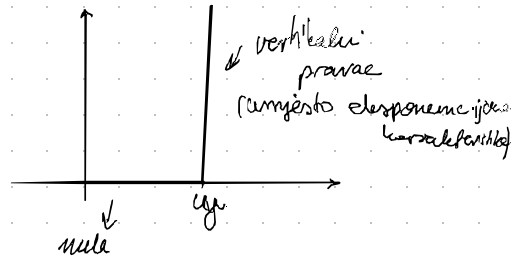 vertikalni
pravac
(umjesto eksponencijalne
karakteristike)
nula